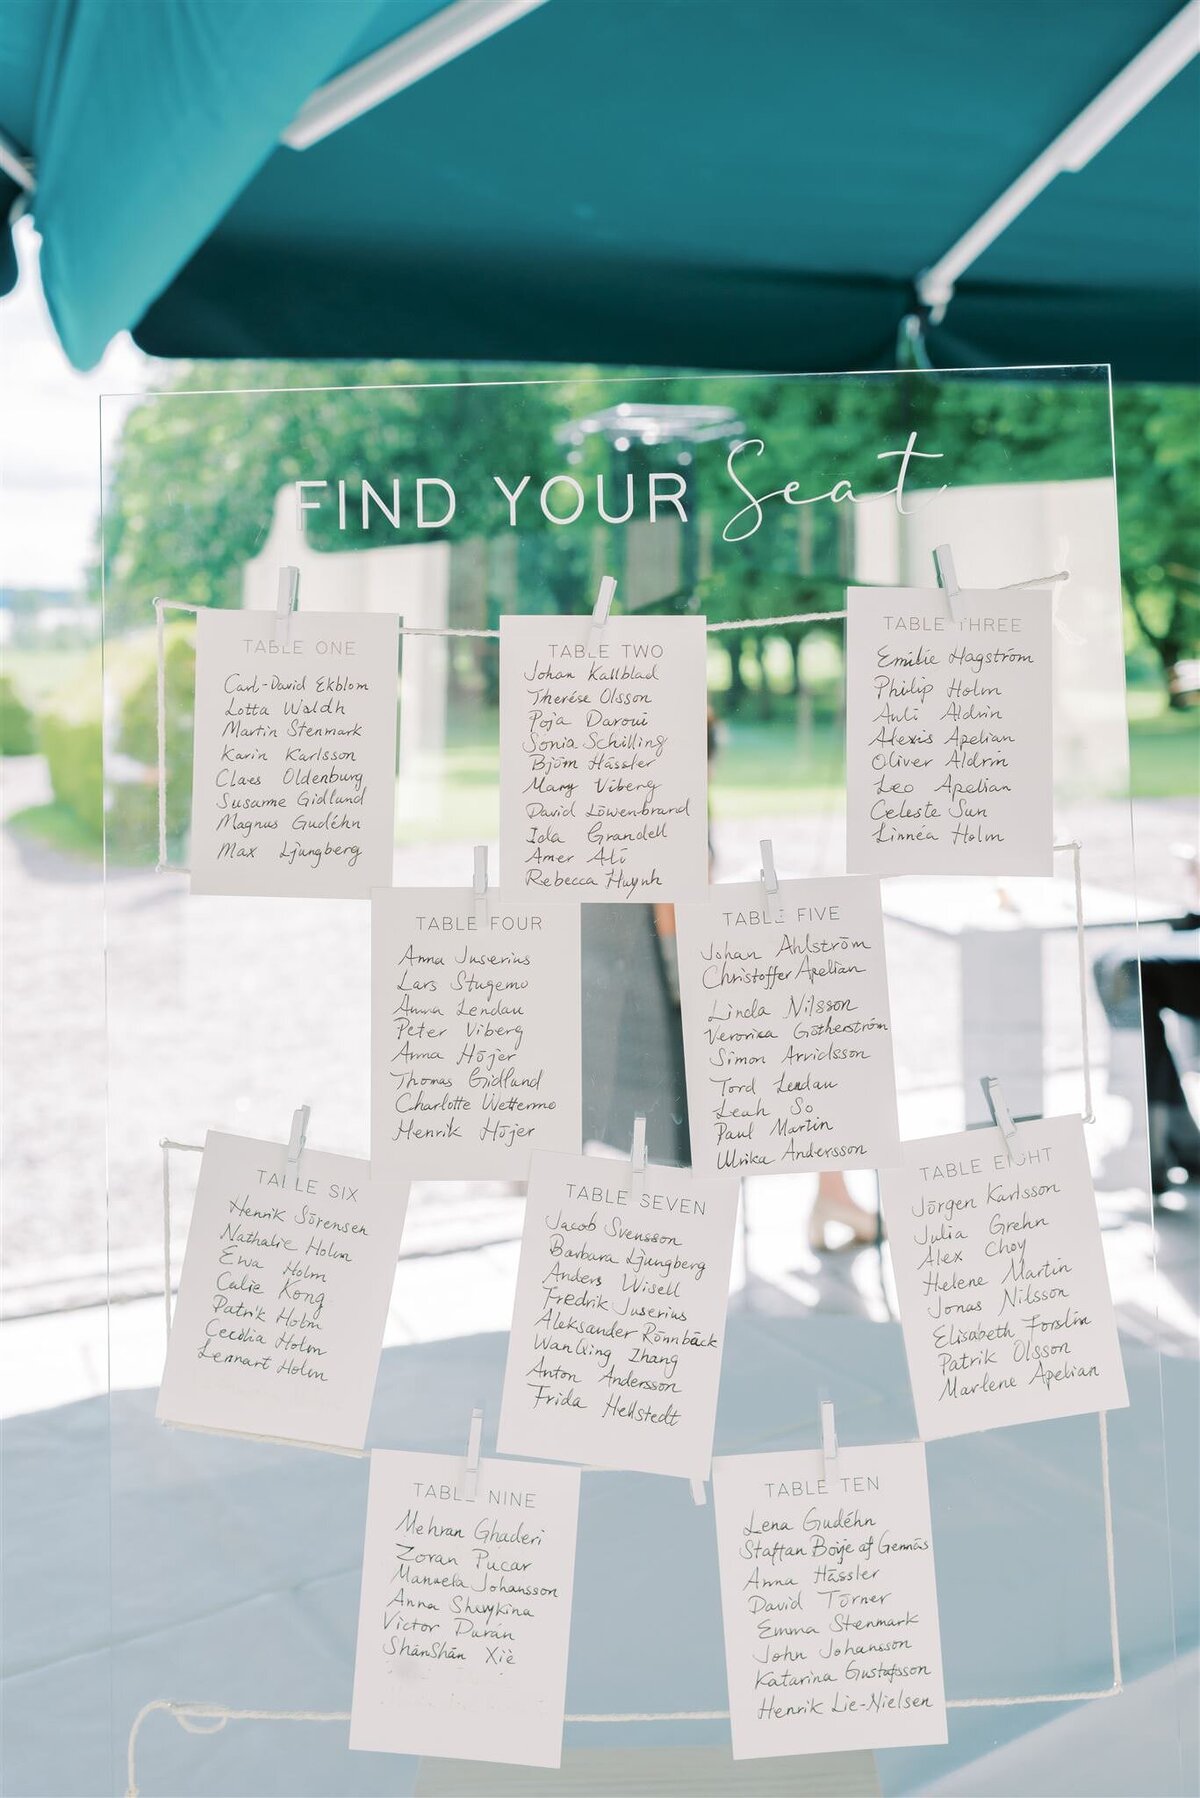 FIND YOUR Seat
TABLE ONE
Carl-David Ekblom
Lotta Waldh
Martin Stenmark
Karin Karlsson
Claes Oldenburg
Susanne Gidlund
Magnus Gudéhn
Max Ljungberg
TABLE TWO
Johan Kallblad
Therése Olsson
Poja Daroui
Sonia Schilling
Björn Hässler
Mary Viberg
David Löwenbrand
Ida Grandell
Amer Ali
Rebecca Huynh
TABLE THREE
Emilie Hagström
Philip Holm
Auli Aldrin
Alexis Apelian
Oliver Aldrin
Leo Apelian
Celeste Sun
Linnéa Holm
TABLE FOUR
Anna Juserius
Lars Stugemo
Anna Lendau
Peter Viberg
Anna Höjer
Thomas Gidlund
Charlotte Wettermo
Henrik Höjer
TABLE FIVE
Johan Ahlström
Christoffer Apelian
Linda Nilsson
Veronika Götherström
Simon Arvidsson
Tord Lendau
Leah So
Paul Martin
Ulrika Andersson
TABLE SIX
Henrik Sörensen
Nathalie Holm
Ewa Holm
Calie Kong
Patrik Holm
Cecilia Holm
Lennart Holm
TABLE SEVEN
Jacob Svensson
Barbara Ljungberg
Anders Wisell
Fredrik Juserius
Aleksander Rönnbäck
WanQing Zhang
Anton Andersson
Frida Hellstedt
TABLE EIGHT
Jörgen Karlsson
Julia Grehn
Alex Choy
Helene Martin
Jonas Nilsson
Elisabeth Forslin
Patrik Olsson
Marlene Apelian
TABLE NINE
Mehran Ghaderi
Zoran Pucar
Manuela Johansson
Anna Sheykina
Victor Durán
ShānShān Xiè
TABLE TEN
Lena Gudéhn
Staffan Böije af Gennäs
Anna Hässler
David Törner
Emma Stenmark
John Johansson
Katarina Gustafsson
Henrik Lie-Nielsen